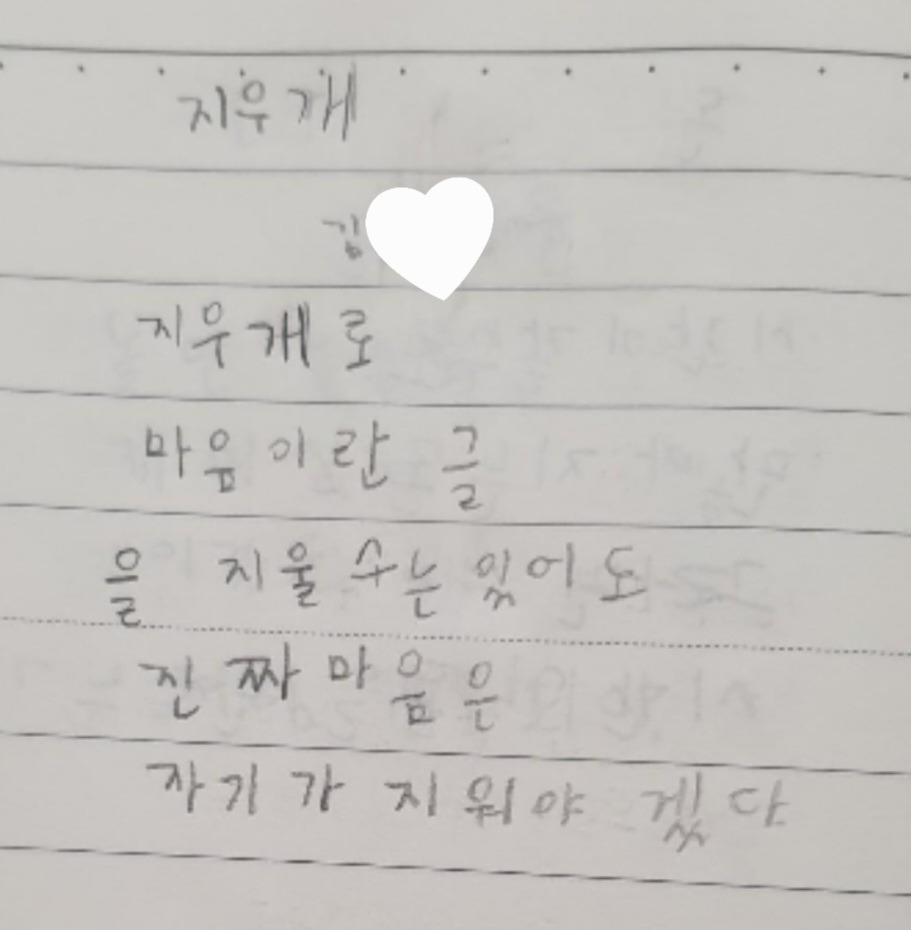 지우개
김
지우개로
마음이란 글
을 지울 수는 있어도
진짜 마음은
자기가 지워야 겠다